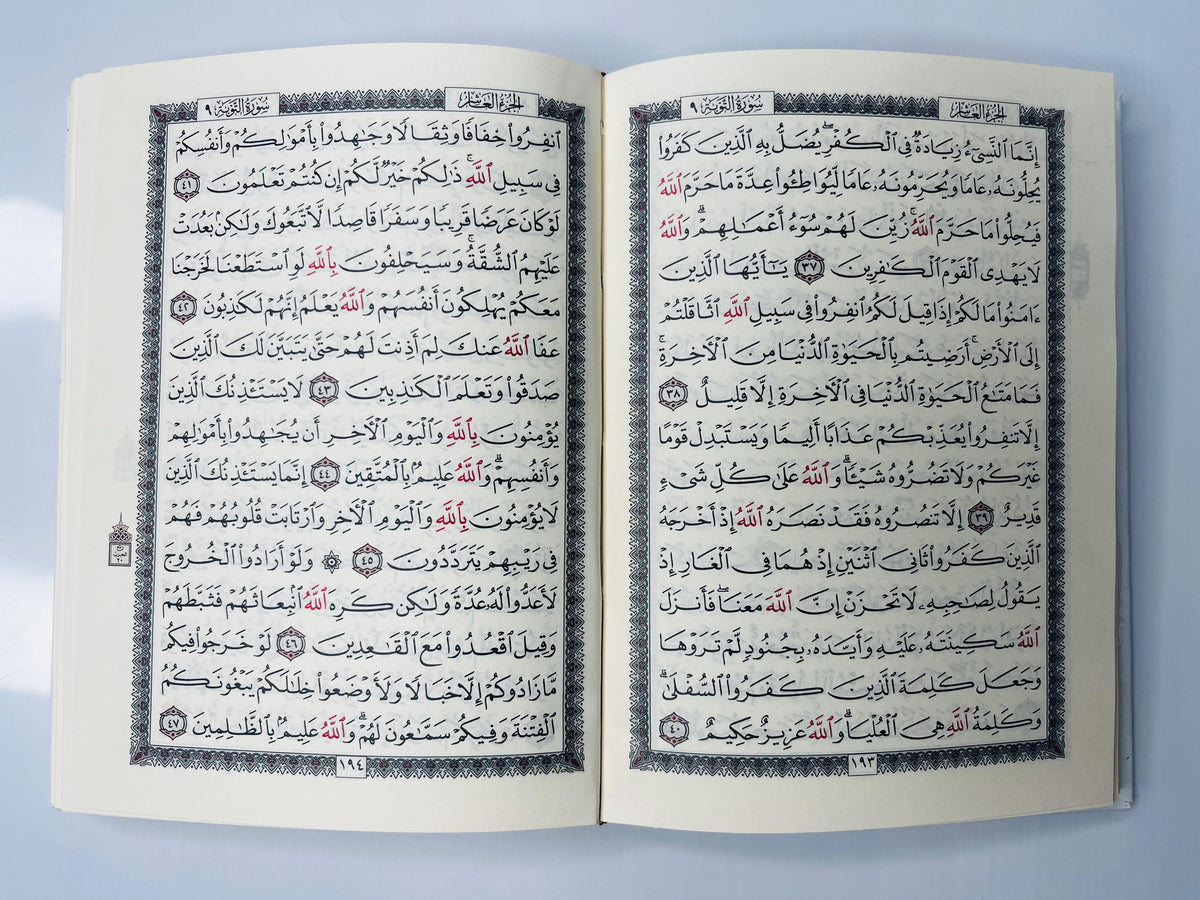 الجزء العاشر
سورة التوبة ٩
إِنَّمَا ٱلنَّسِىٓءُ زِيَادَةٌ فِى ٱلْكُفْرِ ۖ يُضَلُّ بِهِ ٱلَّذِينَ كَفَرُوا۟
يُحِلُّونَهُۥ عَامًا وَيُحَرِّمُونَهُۥ عَامًا لِّيُوَاطِـُٔوا۟ عِدَّةَ مَا حَرَّمَ ٱللَّهُ
فَيُحِلُّوا۟ مَا حَرَّمَ ٱللَّهُ ۚ زُيِّنَ لَهُمْ سُوٓءُ أَعْمَـٰلِهِمْ ۗ وَٱللَّهُ
لَا يَهْدِى ٱلْقَوْمَ ٱلْكَـٰفِرِينَ ٣٧ يَـٰٓأَيُّهَا ٱلَّذِينَ
ءَامَنُوا۟ مَا لَكُمْ إِذَا قِيلَ لَكُمُ ٱنفِرُوا۟ فِى سَبِيلِ ٱللَّهِ ٱثَّاقَلْتُمْ
إِلَى ٱلْأَرْضِ ۚ أَرَضِيتُم بِٱلْحَيَوٰةِ ٱلدُّنْيَا مِنَ ٱلْـَٔاخِرَةِ ۚ
فَمَا مَتَـٰعُ ٱلْحَيَوٰةِ ٱلدُّنْيَا فِى ٱلْـَٔاخِرَةِ إِلَّا قَلِيلٌ ٣٨
إِلَّا تَنفِرُوا۟ يُعَذِّبْكُمْ عَذَابًا أَلِيمًا وَيَسْتَبْدِلْ قَوْمًا
غَيْرَكُمْ وَلَا تَضُرُّوهُ شَيْـًٔا ۗ وَٱللَّهُ عَلَىٰ كُلِّ شَىْءٍ
قَدِيرٌ ٣٩ إِلَّا تَنصُرُوهُ فَقَدْ نَصَرَهُ ٱللَّهُ إِذْ أَخْرَجَهُ
ٱلَّذِينَ كَفَرُوا۟ ثَانِىَ ٱثْنَيْنِ إِذْ هُمَا فِى ٱلْغَارِ إِذْ
يَقُولُ لِصَـٰحِبِهِۦ لَا تَحْزَنْ إِنَّ ٱللَّهَ مَعَنَا ۖ فَأَنزَلَ
ٱللَّهُ سَكِينَتَهُۥ عَلَيْهِ وَأَيَّدَهُۥ بِجُنُودٍ لَّمْ تَرَوْهَا
وَجَعَلَ كَلِمَةَ ٱلَّذِينَ كَفَرُوا۟ ٱلسُّفْلَىٰ ۗ
وَكَلِمَةُ ٱللَّهِ هِىَ ٱلْعُلْيَا ۗ وَٱللَّهُ عَزِيزٌ حَكِيمٌ ٤٠
١٩٣
الجزء العاشر
سورة التوبة ٩
ٱنفِرُوا۟ خِفَافًا وَثِقَالًا وَجَـٰهِدُوا۟ بِأَمْوَٰلِكُمْ وَأَنفُسِكُمْ
فِى سَبِيلِ ٱللَّهِ ۚ ذَٰلِكُمْ خَيْرٌ لَّكُمْ إِن كُنتُمْ تَعْلَمُونَ ٤١
لَوْ كَانَ عَرَضًا قَرِيبًا وَسَفَرًا قَاصِدًا لَّٱتَّبَعُوكَ وَلَـٰكِنۢ بَعُدَتْ
عَلَيْهِمُ ٱلشُّقَّةُ ۚ وَسَيَحْلِفُونَ بِٱللَّهِ لَوِ ٱسْتَطَعْنَا لَخَرَجْنَا
مَعَكُمْ يُهْلِكُونَ أَنفُسَهُمْ وَٱللَّهُ يَعْلَمُ إِنَّهُمْ لَكَـٰذِبُونَ ٤٢
عَفَا ٱللَّهُ عَنكَ لِمَ أَذِنتَ لَهُمْ حَتَّىٰ يَتَبَيَّنَ لَكَ ٱلَّذِينَ
صَدَقُوا۟ وَتَعْلَمَ ٱلْكَـٰذِبِينَ ٤٣ لَا يَسْتَـْٔذِنُكَ ٱلَّذِينَ
يُؤْمِنُونَ بِٱللَّهِ وَٱلْيَوْمِ ٱلْـَٔاخِرِ أَن يُجَـٰهِدُوا۟ بِأَمْوَٰلِهِمْ
وَأَنفُسِهِمْ ۗ وَٱللَّهُ عَلِيمٌۢ بِٱلْمُتَّقِينَ ٤٤ إِنَّمَا يَسْتَـْٔذِنُكَ ٱلَّذِينَ
لَا يُؤْمِنُونَ بِٱللَّهِ وَٱلْيَوْمِ ٱلْـَٔاخِرِ وَٱرْتَابَتْ قُلُوبُهُمْ فَهُمْ
فِى رَيْبِهِمْ يَتَرَدَّدُونَ ٤٥ ۞ وَلَوْ أَرَادُوا۟ ٱلْخُرُوجَ
لَأَعَدُّوا۟ لَهُۥ عُدَّةً وَلَـٰكِن كَرِهَ ٱللَّهُ ٱنۢبِعَاثَهُمْ فَثَبَّطَهُمْ
وَقِيلَ ٱقْعُدُوا۟ مَعَ ٱلْقَـٰعِدِينَ ٤٦ لَوْ خَرَجُوا۟ فِيكُم
مَّا زَادُوكُمْ إِلَّا خَبَالًا وَلَأَوْضَعُوا۟ خِلَـٰلَكُمْ يَبْغُونَكُمُ
ٱلْفِتْنَةَ وَفِيكُمْ سَمَّـٰعُونَ لَهُمْ ۗ وَٱللَّهُ عَلِيمٌۢ بِٱلظَّـٰلِمِينَ ٤٧
١٩٤